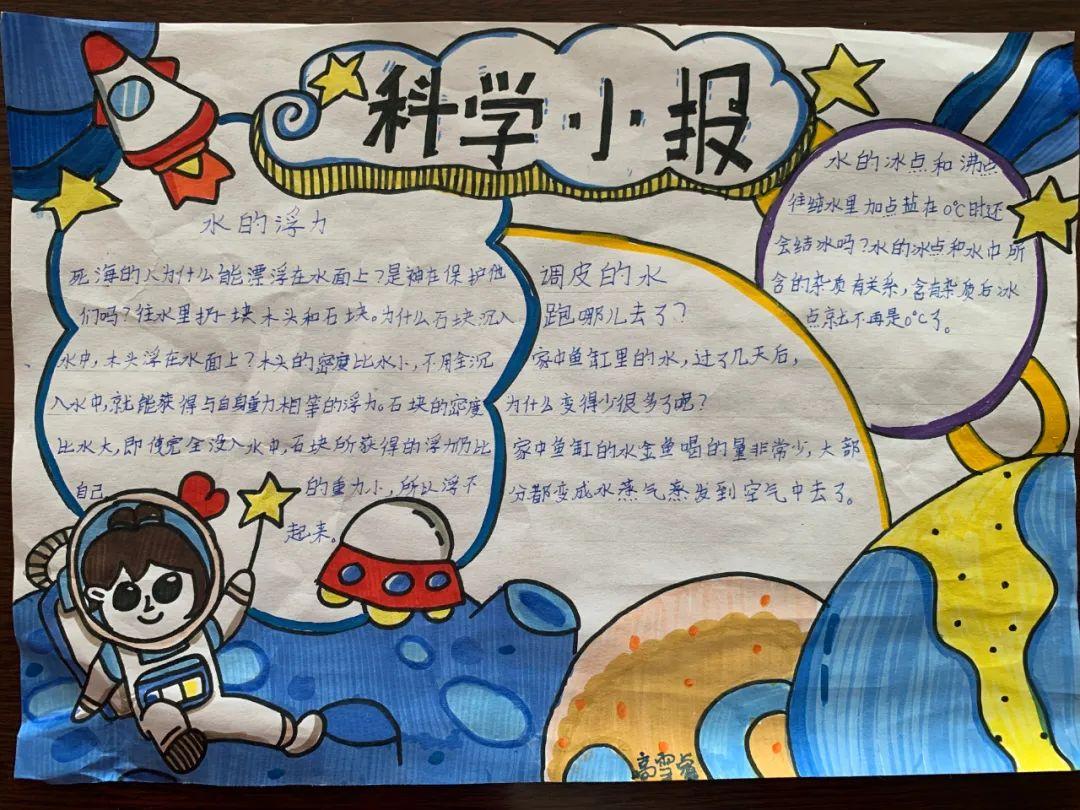 科学小报
水的浮力
死海的人为什么能漂浮在水面上?是神在保护他
们吗?往水里扔一块木头和石块。为什么石块沉入
水中,木头浮在水面上?木头的密度比水小,不用全沉
入水中,就能获得与自身重力相等的浮力。石块的密度
比水大,即使完全没入水中,石块所获得的浮力仍比
自己
的重力小,所以浮不
起来。
调皮的水
跑哪儿去了?
家中鱼缸里的水,过了几天后,
为什么变得少很多了呢?
家中鱼缸的水金鱼喝的量非常少,大部
分都变成水蒸气蒸发到空气中去了。
水的冰点和沸点
往纯水里加点盐在0℃时还
会结冰吗?水的冰点和水中所
含的杂质有关系,含有杂质后冰
点就不再是0℃了。
高雪